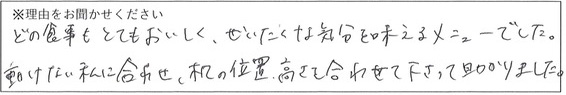 ※理由をお聞かせください
どの食事もとてもおいしく、ぜいたくな気分を味えるメニューでした。
動けない私に合わせ、机の位置、高さも合わせて下さって助かりました。